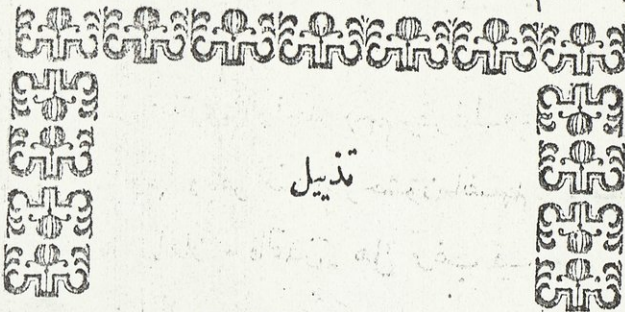 تذييل